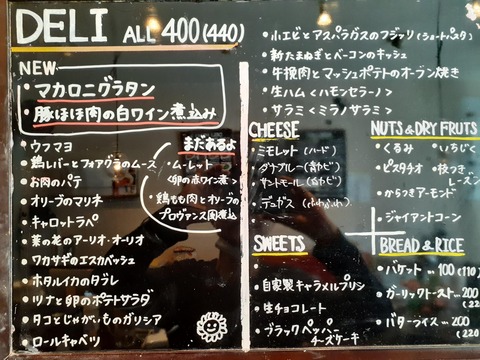 DELI ALL 400(440)
NEW
・マカロニグラタン
・豚ほほ肉の白ワイン煮込み
・ウフマヨ
・鶏レバーとフォアグラのムース
・お肉のパテ
・オリーブのマリネ
・キャロットラペ
・菜の花のアーリオ・オーリオ
・ワカサギのエスカベッシュ
・ホタルイカのタブレ
・ツナと卵のポテトサラダ
・タコとじゃがいものガリシア
・ロールキャベツ
まだあるよ
・ムーレット
<卵の赤ワイン煮>
・鶏もも肉とオリーブの
プロヴァンス風煮込
・小エビとアスパラガスのフジッリ(ショートパスタ)
・新たまねぎとベーコンのキッシュ
・牛挽肉とマッシュポテトのオーブン焼き
・生ハム<ハモンセラーノ>
・サラミ<ミラノサラミ>
CHEESE
・ミモレット(ハード)
・ダナブルー(青カビ)
・サントモール(白カビ)
・デュガス
NUTS & DRY FRUTS
・くるみ ・いちじく
・ピスタチオ ・枝つき
レーズン
・からつきアーモンド
・ジャイアントコーン
SWEETS
・自家製キャラメルプリン
・生チョコレート
・ブラックペッパー
チーズケーキ
BREAD & RICE
・バケット…100(110)
・ガーリックトースト…200
(220
・バターライス…200
(220